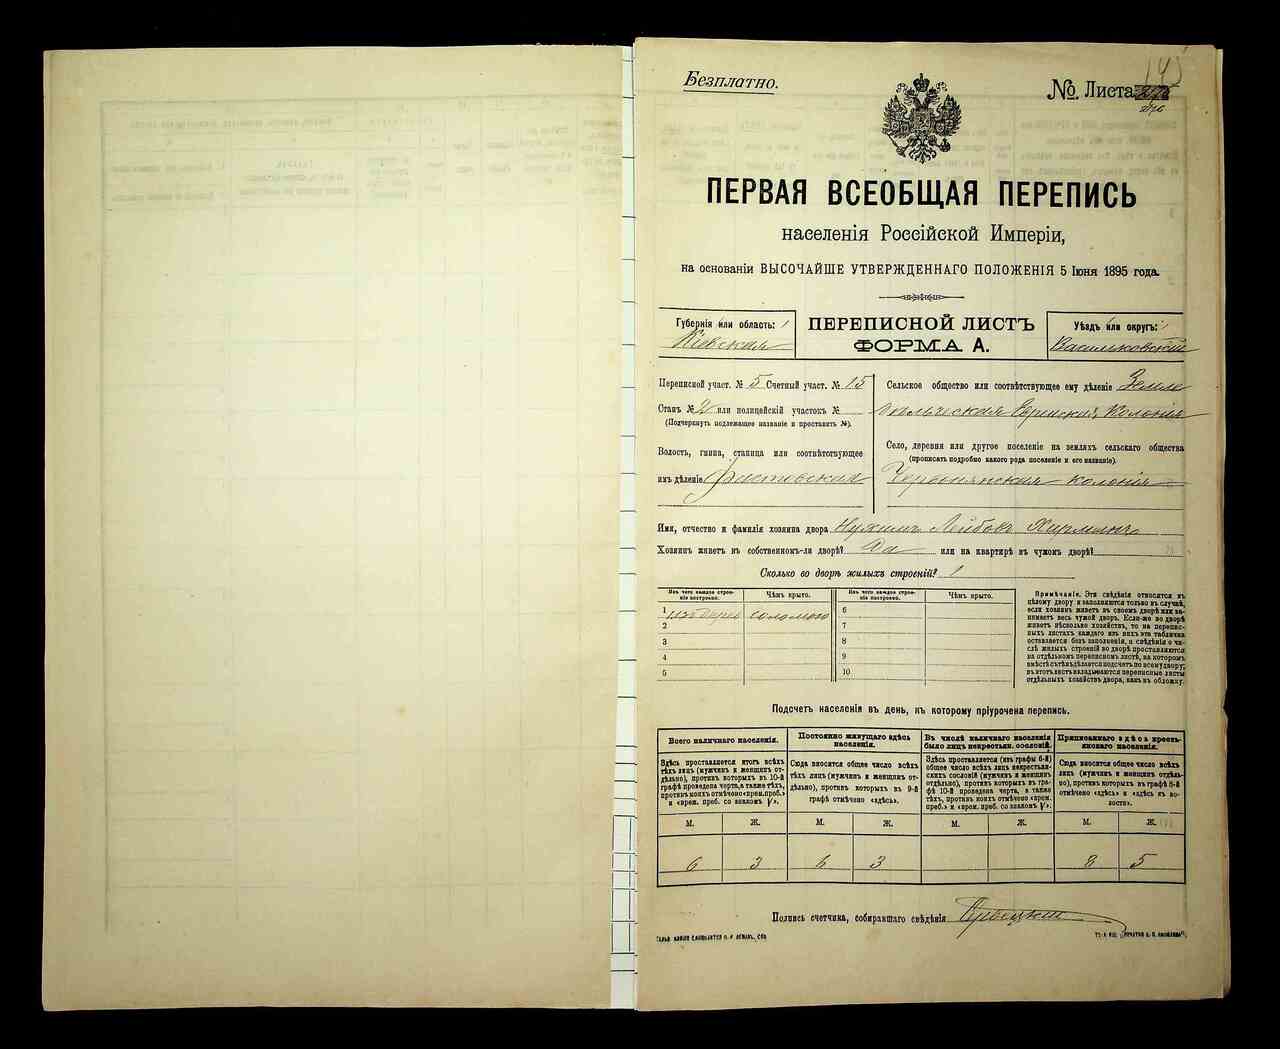 Безплатно.
№ Листа
145
ПЕРВАЯ ВСЕОБЩАЯ ПЕРЕПИСЬ
населенія Россійской Имперіи,
на основаніи ВЫСОЧАЙШЕ УТВЕРЖДЕННАГО ПОЛОЖЕНІЯ 5 Іюня 1895 года.
Губернія или область:
Кіевская
ПЕРЕПИСНОЙ ЛИСТЪ
ФОРМА А.
Уѣздъ или округъ:
Васильковскій
Переписной участ. № 5 Счетный участ. № 15
Станъ № 2 или полицейскій участокъ №
(Подчеркнуть подлежащее названіе и проставить №).
Волость, гмина, станица или соотвѣтствующее
имъ дѣленіе Фастовская
Сельское общество или соотвѣтствующее ему дѣленіе Земле
дѣльческая Еврейская Колонія
Село, деревня или другое поселеніе на земляхъ сельскаго общества
(прописать подробно какого рода поселеніе и его названіе).
Червонянская колонія
Имя, отчество и фамилія хозяина двора Нухимъ Лейбовъ
Хозяинъ живетъ въ собственномъ-ли дворѣ? Да или на квартирѣ въ чужомъ дворѣ?
Сколько во дворѣ жилыхъ строеній? 1
Изъ чего каждое строе-
ніе построено.
Чѣмъ крыто.
Изъ чего каждое строе-
ніе построено.
Чѣмъ крыто.
1 изъ дерева соломою
2
3
4
5
6
7
8
9
10
Примѣчаніе. Эти свѣдѣнія относятся къ
цѣлому двору и заполняются только въ случаѣ,
если хозяинъ живетъ въ своемъ дворѣ или за-
нимаетъ весь чужой дворъ. Если-же во дворѣ
живетъ нѣсколько хозяйствъ, то на перепис-
ныхъ листахъ каждаго изъ нихъ эта табличка
оставляется безъ заполненія, а свѣдѣнія о чи-
слѣ жилыхъ строеній во дворѣ проставляются
на отдѣльномъ переписномъ листѣ, на которомъ
вмѣстѣ съ тѣмъ дѣлается подсчетъ по всему двору;
въ этотъ листъ вкладываются переписные листы
отдѣльныхъ хозяйствъ двора, какъ въ обложку.
Подсчетъ населенія въ день, къ которому пріурочена перепись.
Всего наличнаго населенія.
Здѣсь проставляется итогъ всѣхъ
тѣхъ лицъ (мужчинъ и женщинъ от-
дѣльно), противъ которыхъ въ 10-й
графѣ проведена черта, а также тѣхъ,
противъ коихъ отмѣчено «врем. преб.»
и «врем. преб. со знакомъ V».
Постоянно живущаго здѣсь
населенія.
Сюда вносится общее число всѣхъ
тѣхъ лицъ (мужчинъ и женщинъ от-
дѣльно), противъ которыхъ въ 9-й
графѣ отмѣчено «здѣсь».
Въ числѣ наличнаго населенія
было лицъ некрестьян. сословій.
Здѣсь проставляется (изъ графы 6-й)
общее число всѣхъ лицъ некрестьян-
скихъ сословій (мужчинъ и женщинъ
отдѣльно), противъ которыхъ въ гра-
фѣ 10-й проведена черта, а также
тѣхъ, противъ коихъ отмѣчено «врем.
преб.» и «врем. преб. со знакомъ V».
Приписаннаго здѣсь кресть-
янскаго населенія.
Сюда вносится общее число всѣхъ
лицъ (мужчинъ и женщинъ отдѣль-
но), противъ которыхъ въ графѣ 8-й
отмѣчено «здѣсь» и «здѣсь въ во-
лости».
М. Ж. М. Ж. М. Ж. М. Ж.
6 3 6 3 8 5
Подпись счетчика, собиравшаго свѣдѣнія